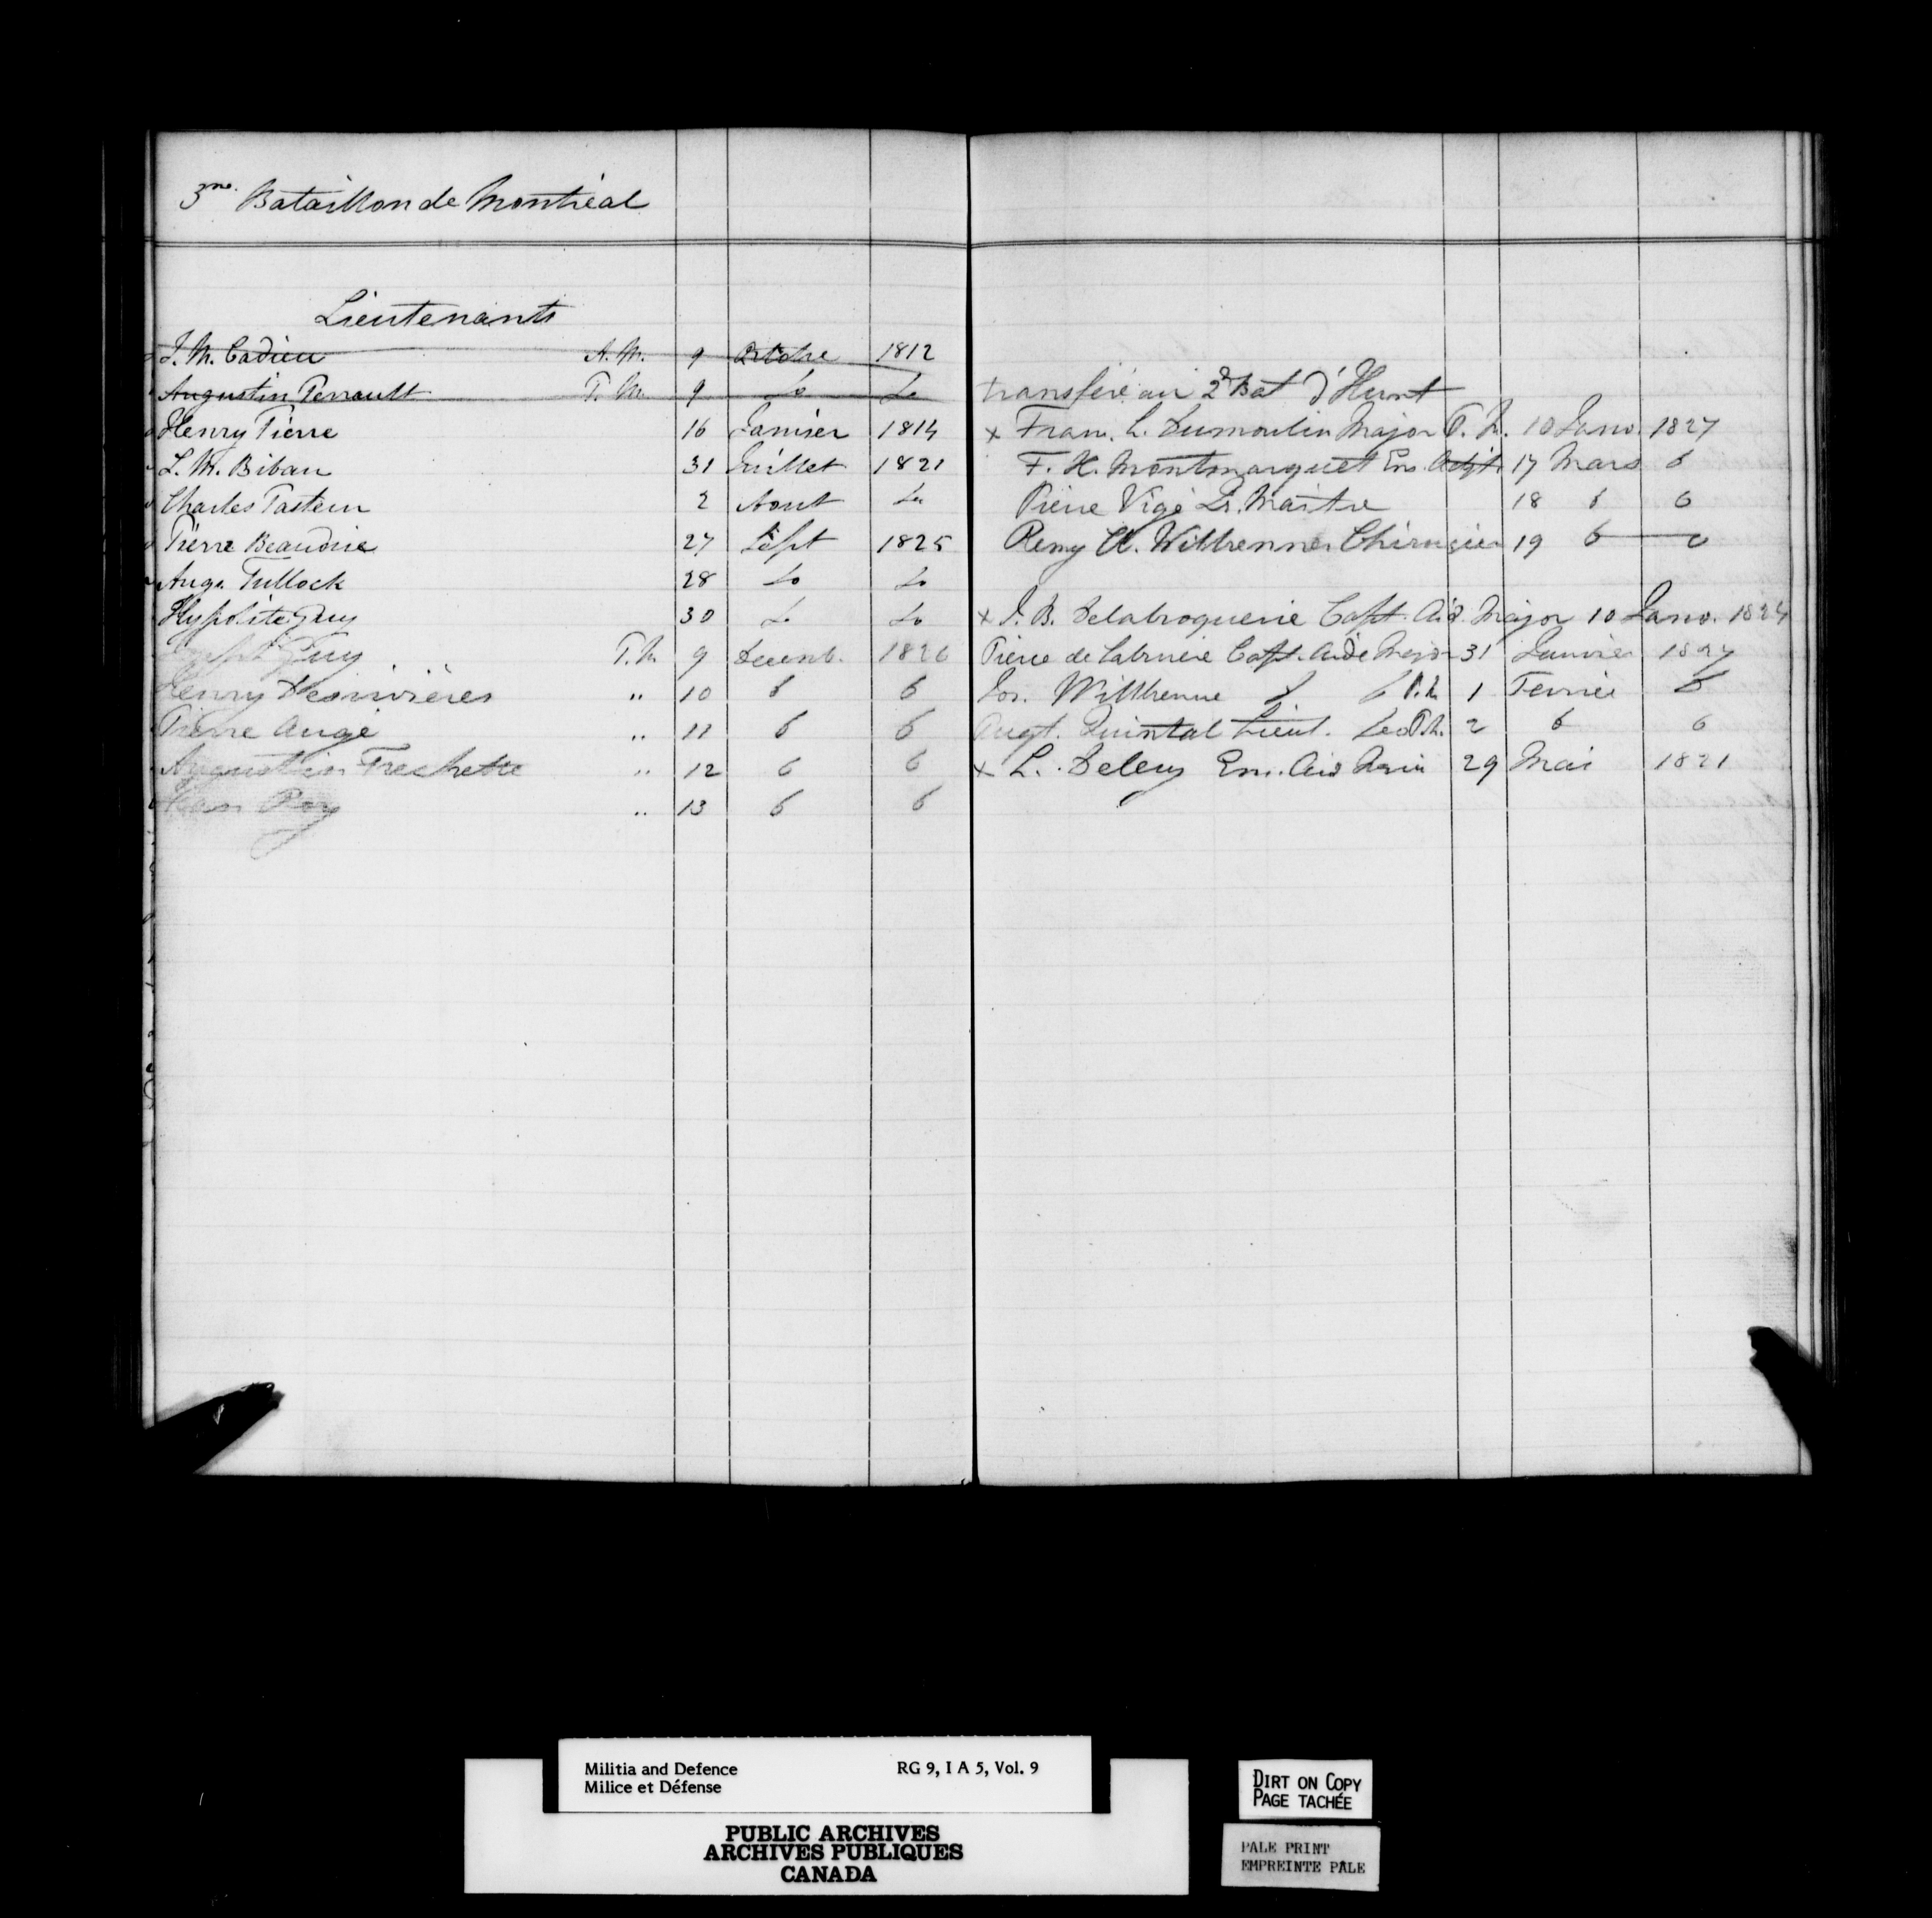 3me. Bataillon de Montréal
Lieutenants
J. M. Cadieu A. M. 9 Octobre 1812
Augustin Perrault P. M. 9 do do
Henry Pierre 16 Janvier 1814
L. M. Bibau 31 Juillet 1821
Charles 2 Aout do
Pierre Beaudrie 27 Sept 1825
Augn. Tullock 28 do do
Hypolite Guy 30 do do
Joseph Guy P. M. 9 Decemb. 1826
Henry Desrivières " 10 do do
Pierre Augé " 11 do do
Augustin Frechette " 12 do do
Roy " 13 do do
transféré au 2d Bat d'Hunt
x Fran. L. Dumoulin Major P. M. 10 Janv. 1827
F. X. Montmarquet Ens. Adjt. 17 Mars do
Pierre Vigé Qr. Maitre 18 do do
Remy C. Wilbrenner Chirugien 19 do do
x J. B. Delabroquerie Capt. Aid. Major 10 Janv. 1824
Pierre de Labruère Capt. Aide Major 31 Janvier 1827
Jos. Wiltbrenne do do P. M. 1 Fevrier do
Augt. Quintal Lieut. do P. M. 2 do do
x L. Delery Ens. Aid Major 29 Mai 1821
Militia and Defence RG 9, I A 5, Vol. 9
Milice et Défense
PUBLIC ARCHIVES
ARCHIVES PUBLIQUES
CANADA
DIRT ON COPY
PAGE TACHÉE
PALE PRINT
EMPREINTE PÂLE